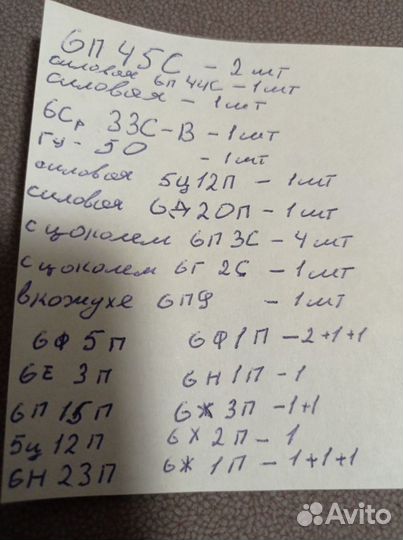 6П45С - 2 шт
силовая 6П44С - 1 шт
силовая - 1 шт
6Ср 33С-В - 1 шт
Гу-50 - 1 шт
силовая 5ц12П - 1 шт
силовая 6Д20П - 1 шт
с цоколем 6П3С - 4 шт
с цоколем 6Г2С - 1 шт
в кожухе 6П9 - 1 шт
6Ф5П 6Ф1П - 2+1+1
6Е3П 6Н1П - 1
6П15П 6Ж3П - 1+1
5ц12П 6Х2П - 1
6Н23П 6Ж1П - 1+1+1
Avito